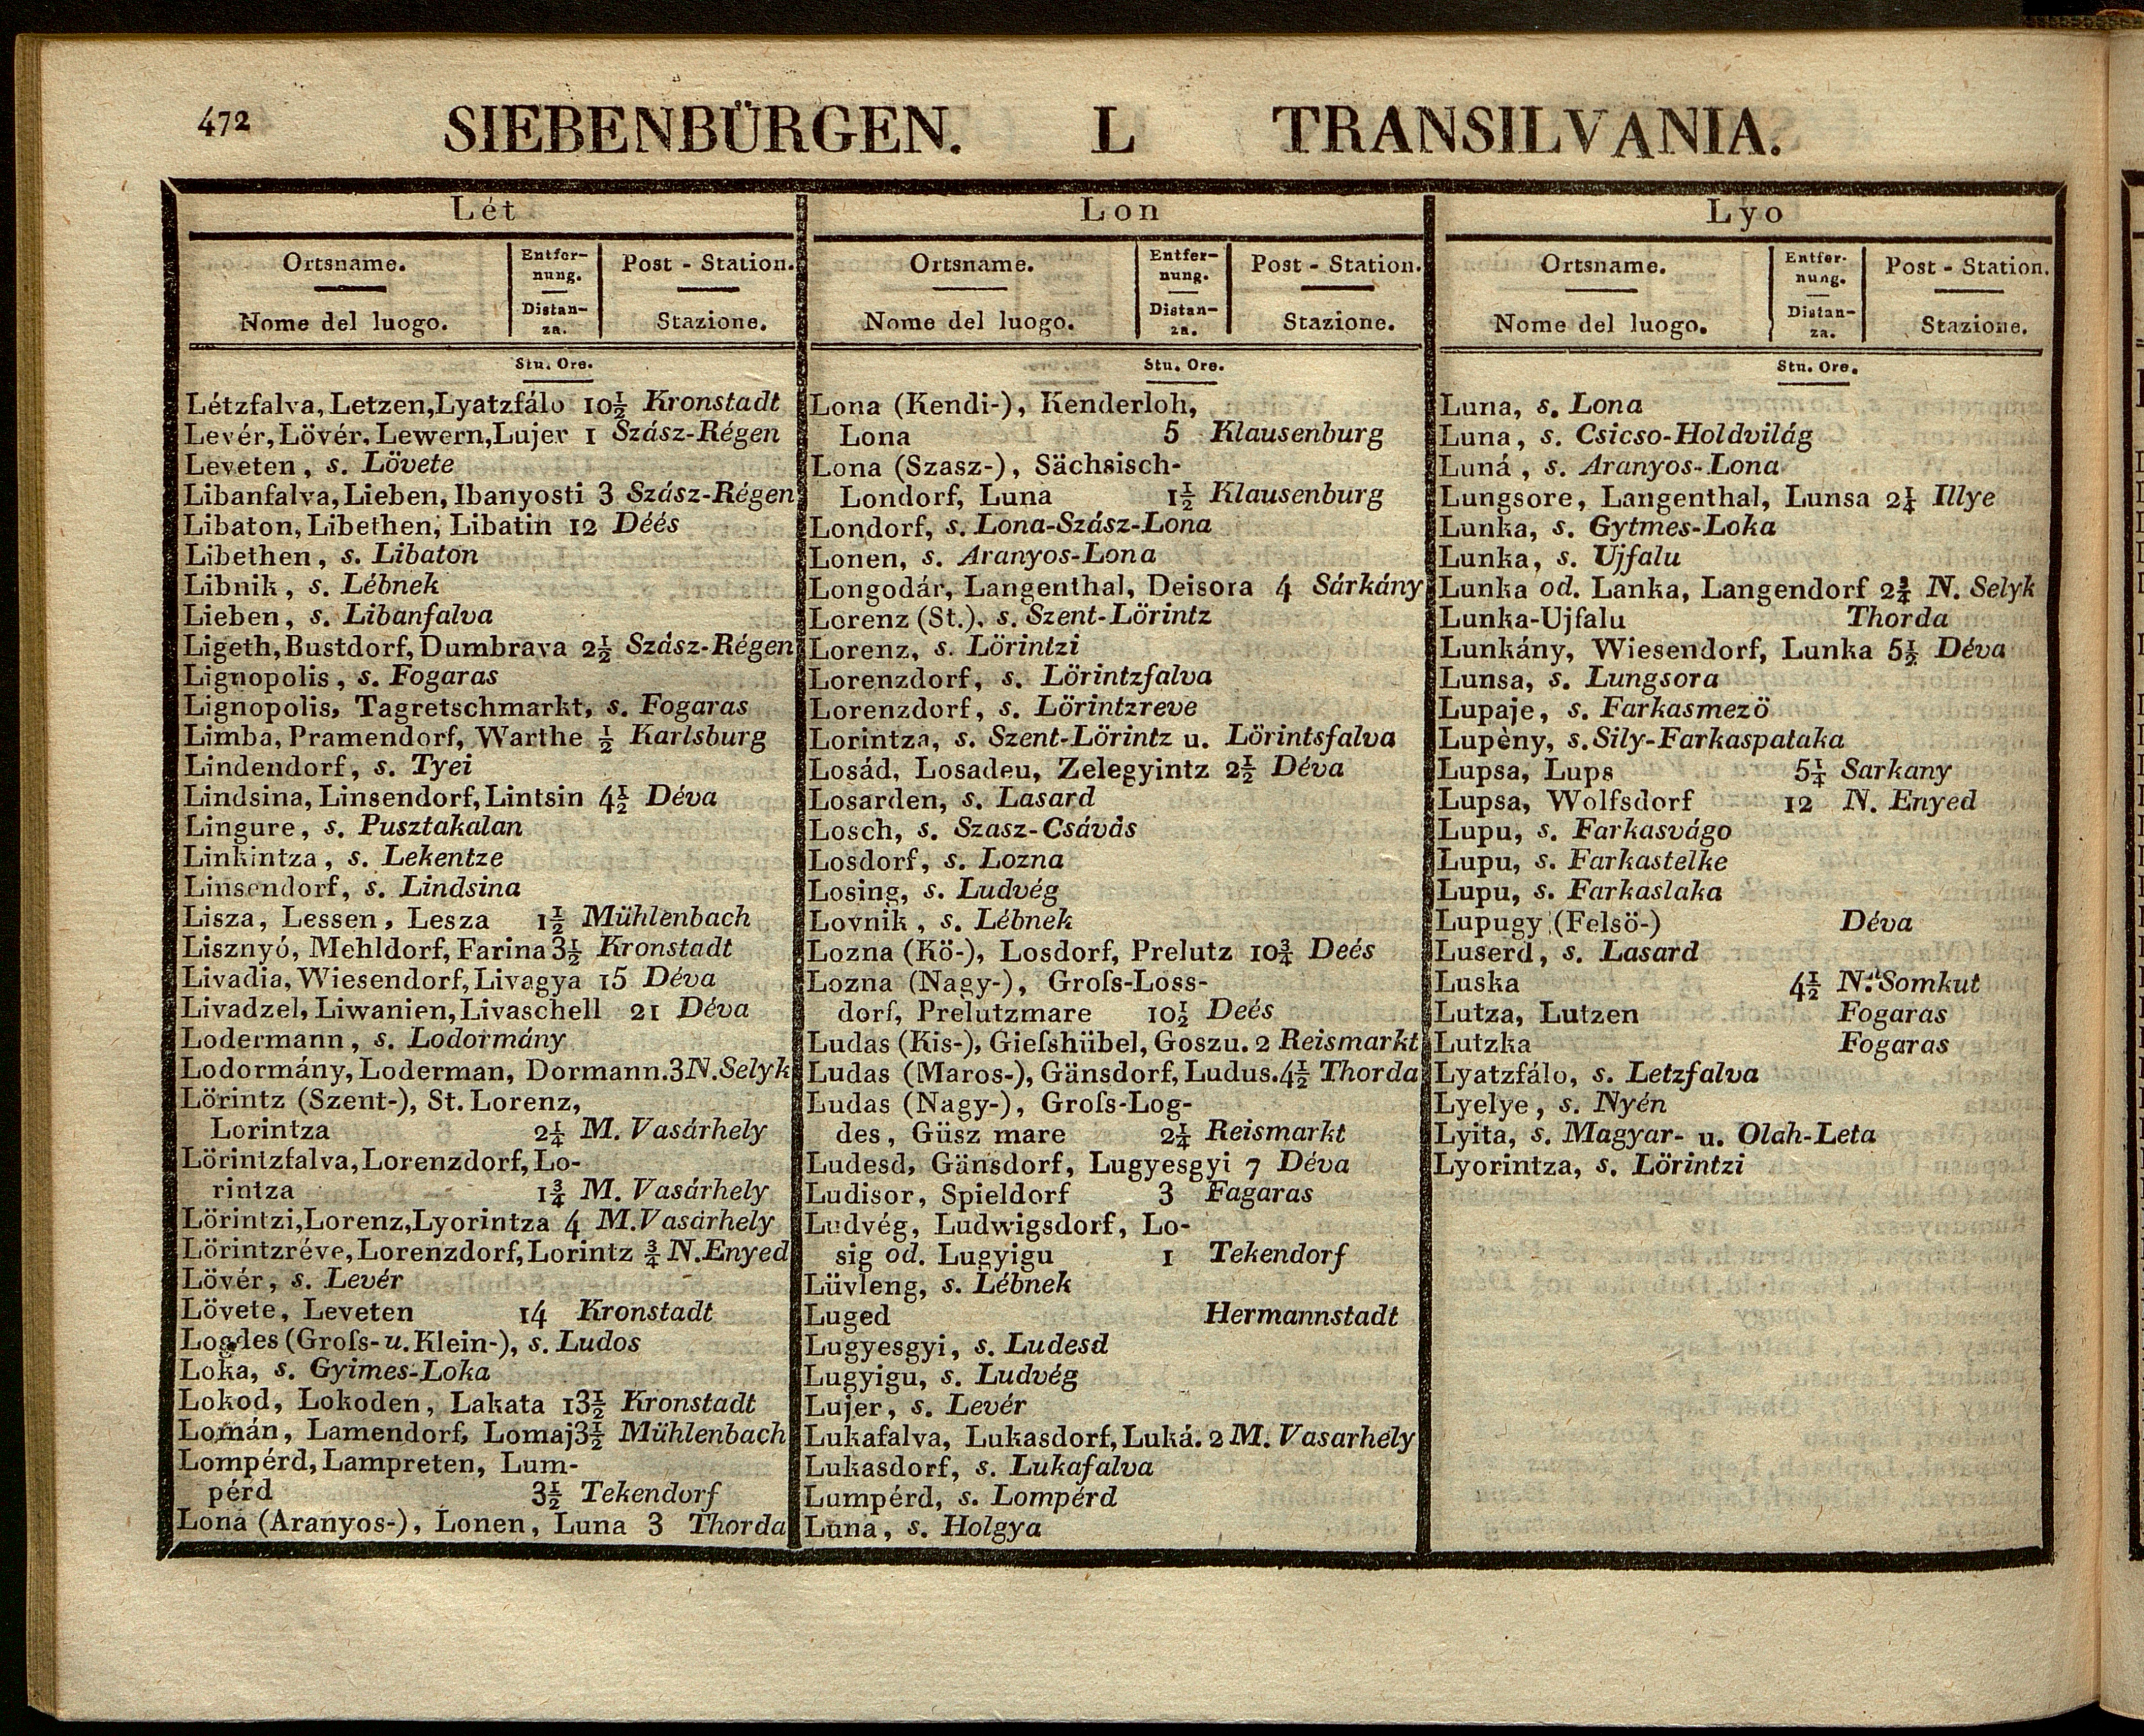 472
SIEBENBÜRGEN. L TRANSILVANIA.
Lét
Ortsname.
Entfer-
nung.
Post - Station.
Nome del luogo.
Distan-
za.
Stazione.
Stu. Ore.
Létzfalva, Letzen, Lyatzfálo 10½ Kronstadt
Levér, Lövér, Lewern, Lujer 1 Szász-Régen
Leveten, s. Lövete
Libanfalva, Lieben, Ibanyosti 3 Szász-Régen
Libaton, Libethen, Libatin 12 Déés
Libethen, s. Libaton
Libnik, s. Lébnek
Lieben, s. Libanfalva
Ligeth, Bustdorf, Dumbrava 2½ Szász-Régen
Lignopolis, s. Fogaras
Lignopolis, Tagretschmarkt, s. Fogaras
Limba, Pramendorf, Warthe ½ Karlsburg
Lindendorf, s. Tyei
Lindsina, Linsendorf, Lintsin 4½ Déva
Lingure, s. Pusztakalan
Linkintza, s. Lekentze
Linsendorf, s. Lindsina
Lisza, Lessen, Lesza 1½ Mühlenbach
Lisznyó, Mehldorf, Farina 3½ Kronstadt
Livadia, Wiesendorf, Livagya 15 Déva
Livadzel, Liwanien, Livaschell 21 Déva
Lodermann, s. Lodormány
Lodormány, Loderman, Dormann. 3 N. Selyk
Lörintz (Szent-), St. Lorenz,
Lorintza 2¼ M. Vasárhely
Lörintzfalva, Lorenzdorf, Lo-
rintza 1¾ M. Vasárhely
Lörintzi, Lorenz, Lyorintza 4 M. Vasárhely
Lörintzréve, Lorenzdorf, Lorintz ¾ N. Enyed
Lövér, s. Levér
Lövete, Leveten 14 Kronstadt
Logdes (Groſs- u. Klein-), s. Ludos
Loka, s. Gyimes-Loka
Lokod, Lokoden, Lakata 13½ Kronstadt
Lomán, Lamendorf, Lomaj 3½ Mühlenbach
Lompérd, Lampreten, Lum-
pérd 3½ Tekendorf
Lona (Aranyos-), Lonen, Luna 3 Thorda
Lon
Ortsname.
Entfer-
nung.
Post - Station.
Nome del luogo.
Distan-
za.
Stazione.
Stu. Ore.
Lona (Kendi-), Kenderloh,
Lona 5 Klausenburg
Lona (Szasz-), Sächsisch-
Londorf, Luna 1½ Klausenburg
Londorf, s. Lona-Szász-Lona
Lonen, s. Aranyos-Lona
Longodár, Langenthal, Deisora 4 Sárkány
Lorenz (St.), s. Szent-Lörintz
Lorenz, s. Lörintzi
Lorenzdorf, s. Lörintzfalva
Lorenzdorf, s. Lörintzreve
Lorintza, s. Szent-Lörintz u. Lörintsfalva
Losád, Losadeu, Zelegyintz 2½ Déva
Losarden, s. Lasard
Losch, s. Szasz-Csávás
Losdorf, s. Lozna
Losing, s. Ludvég
Lovnik, s. Lébnek
Lozna (Kö-), Losdorf, Prelutz 10¾ Deés
Lozna (Nagy-), Groſs-Loss-
dorf, Prelutzmare 10½ Deés
Ludas (Kis-), Gieſshübel, Goszu. 2 Reismarkt
Ludas (Maros-), Gänsdorf, Ludus. 4½ Thorda
Ludas (Nagy-), Groſs-Log-
des, Güsz mare 2¼ Reismarkt
Ludesd, Gänsdorf, Lugyesgyi 7 Déva
Ludisor, Spieldorf 3 Fagaras
Ludvég, Ludwigsdorf, Lo-
sig od. Lugyigu 1 Tekendorf
Lüvleng, s. Lébnek
Luged Hermannstadt
Lugyesgyi, s. Ludesd
Lugyigu, s. Ludvég
Lujer, s. Levér
Lukafalva, Lukasdorf, Luká. 2 M. Vasarhely
Lukasdorf, s. Lukafalva
Lumpérd, s. Lompérd
Luna, s. Holgya
Lyo
Ortsname.
Entfer-
nung.
Post - Station.
Nome del luogo.
Distan-
za.
Stazione.
Stu. Ore.
Luna, s. Lona
Luna, s. Csicso-Holdvilág
Luná, s. Aranyos-Lona
Lungsore, Langenthal, Lunsa 2¼ Illye
Lunka, s. Gytmes-Loka
Lunka, s. Ujfalu
Lunka od. Lanka, Langendorf 2¾ N. Selyk
Lunka-Ujfalu Thorda
Lunkány, Wiesendorf, Lunka 5½ Déva
Lunsa, s. Lungsora
Lupaje, s. Farkasmezö
Lupèny, s. Sily-Farkaspataka
Lupsa, Lups 5¼ Sarkany
Lupsa, Wolfsdorf 12 N. Enyed
Lupu, s. Farkasvágo
Lupu, s. Farkastelke
Lupu, s. Farkaslaka
Lupugy (Felsö-) Déva
Luserd, s. Lasard
Luska 4½ N. Somkut
Lutza, Lutzen Fogaras
Lutzka Fogaras
Lyatzfálo, s. Letzfalva
Lyelye, s. Nyén
Lyita, s. Magyar- u. Olah-Leta
Lyorintza, s. Lörintzi